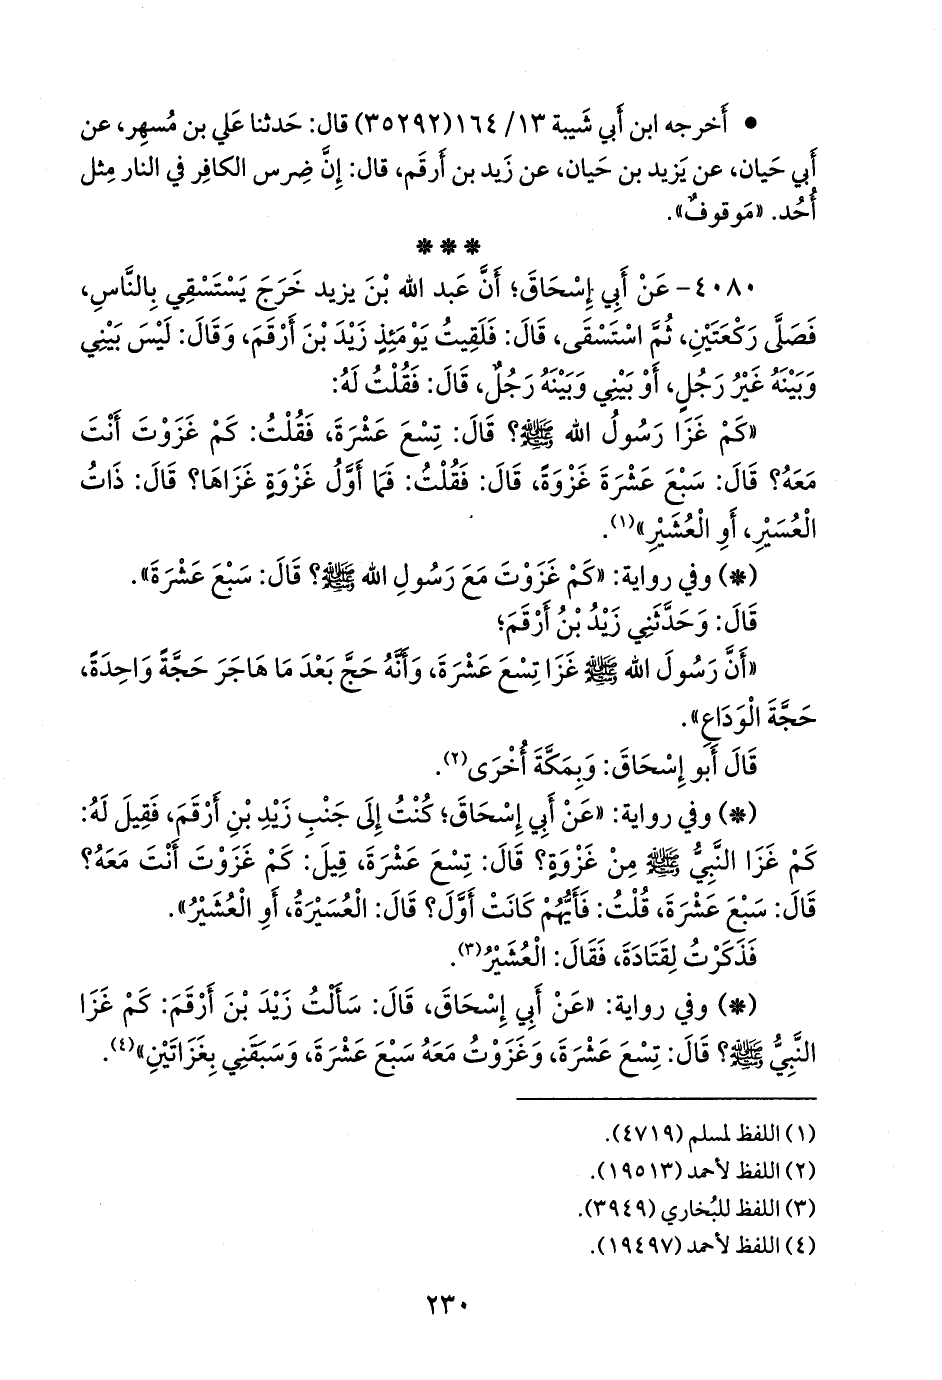 • أَخرجه ابن أَبي شَيبة ١٣/ ١٦٤(٣٥٢٩٢) قال: حَدثنا عَلي بن مُسهِر، عن
أَبي حَيان، عن يَزيد بن حَيان، عن زَيد بن أَرقَم، قال: إِنَّ ضِرس الكافِر في النار مِثل
أُحُد. «مَوقوفٌ».
* * *
٤٠٨٠- عَنْ أَبِي إِسْحَاقَ؛ أَنَّ عَبد الله بْنَ يزيد خَرَجَ يَسْتَسْقِي بِالنَّاسِ،
فَصَلَّى رَكْعَتَيْنِ، ثُمَّ اسْتَسْقَى، قَالَ: فَلَقِيتُ يَوْمَئِذٍ زَيْدَ بْنَ أَرْقَمَ، وَقَالَ: لَيْسَ بَيْنِي
وَبَيْنَهُ غَيْرُ رَجُلٍ، أَوْ بَيْنِي وَبَيْنَهُ رَجُلٌ، قَالَ: فَقُلْتُ لَهُ:
«كَمْ غَزَا رَسُولُ الله ﷺ؟ قَالَ: تِسْعَ عَشْرَةَ، فَقُلْتُ: كَمْ غَزَوْتَ أَنْتَ
مَعَهُ؟ قَالَ: سَبْعَ عَشْرَةَ غَزْوَةً، قَالَ: فَقُلْتُ: فَمَا أَوَّلُ غَزْوَةٍ غَزَاهَا؟ قَالَ: ذَاتُ
الْعُسَيْرِ، أَوِ الْعُشَيْرِ»(١).
(*) وفي رواية: «كَمْ غَزَوْتَ مَعَ رَسُولِ الله ﷺ؟ قَالَ: سَبْعَ عَشْرَةَ».
قَالَ: وَحَدَّثَنِي زَيْدُ بْنُ أَرْقَمَ؛
«أَنَّ رَسُولَ الله ﷺ غَزَا تِسْعَ عَشْرَةَ، وَأَنَّهُ حَجَّ بَعْدَ مَا هَاجَرَ حَجَّةً وَاحِدَةً،
حَجَّةَ الْوَدَاعِ».
قَالَ أَبو إِسْحَاقَ: وَبِمَكَّةَ أُخْرَى(٢).
(*) وفي رواية: «عَنْ أَبِي إِسْحَاقَ؛ كُنْتُ إِلَى جَنْبِ زَيْدِ بْنِ أَرْقَمَ، فَقِيلَ لَهُ:
كَمْ غَزَا النَّبِيُّ ﷺ مِنْ غَزْوَةٍ؟ قَالَ: تِسْعَ عَشْرَةَ، قِيلَ: كَمْ غَزَوْتَ أَنْتَ مَعَهُ؟
قَالَ: سَبْعَ عَشْرَةَ، قُلْتُ: فَأَيُّهُمْ كَانَتْ أَوَّلَ؟ قَالَ: الْعُسَيْرَةُ، أَوِ الْعُشَيْرُ».
فَذَكَرْتُ لِقَتَادَةَ، فَقَالَ: الْعُشَيْرُ(٣).
(*) وفي رواية: «عَنْ أَبِي إِسْحَاقَ، قَالَ: سَأَلْتُ زَيْدَ بْنَ أَرْقَمَ: كَمْ غَزَا
النَّبِيُّ ﷺ؟ قَالَ: تِسْعَ عَشْرَةَ، وَغَزَوْتُ مَعَهُ سَبْعَ عَشْرَةَ، وَسَبَقَنِي بِغَزَاتَيْنِ»(٤).
(١) اللفظ لمسلم (٤٧١٩).
(٢) اللفظ لأحمد (١٩٥١٣).
(٣) اللفظ للبُخاري (٣٩٤٩).
(٤) اللفظ لأحمد (١٩٤٩٧).
٢٣٠